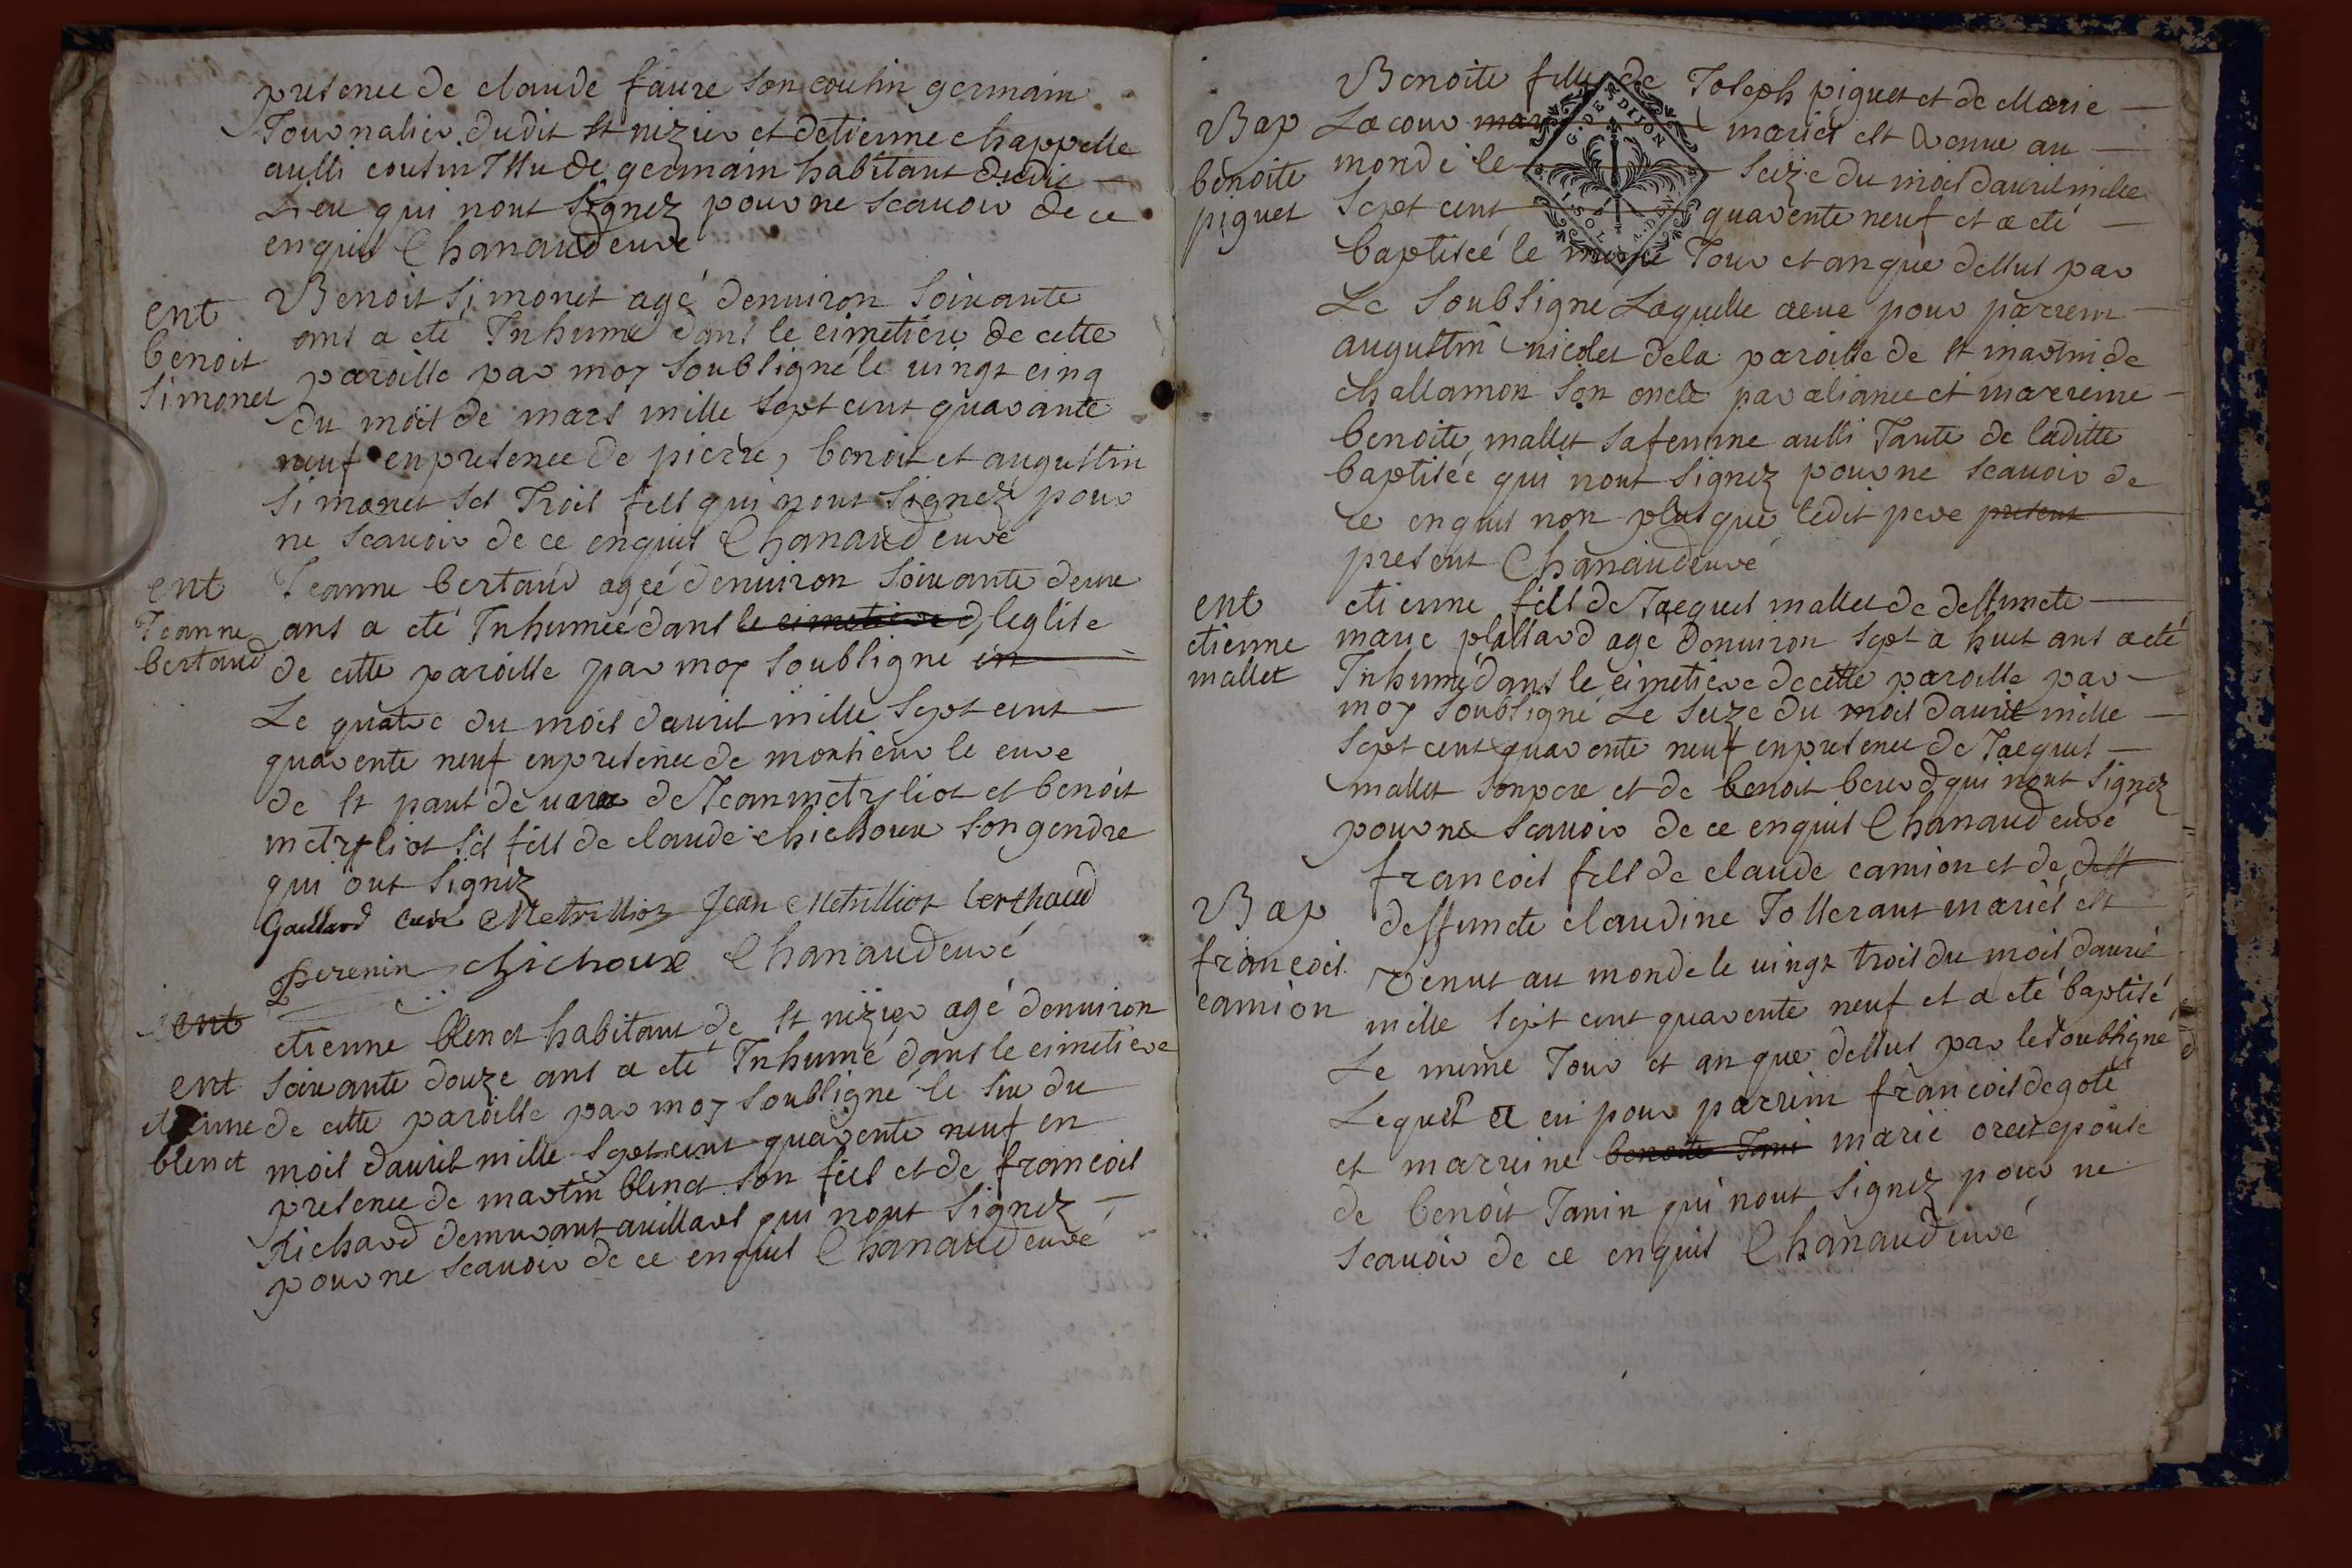 presence de claude faure son cousin germain
Journalier dudit st nizier et detienne chappelle
aussi cousin Issu de germain habitant dudit
Lieu qui nont signez pour ne scavoir de ce
enquis Chanaud curé
ent
benoit
simonet
Benoit simonet agé denuiron soixante
ans a eté Inhumé dans le cimetiere de cette
paroisse par moy soubsigné le uingt cinq
du mois de mars mille sept cent quarante
neuf en presence de pierre, benoit et augustin
simonet ses Trois fils qui nont signez pour
ne scauoir de ce enquis Chanaud curé
ent
Jeanne
bertaud
Jeanne bertaud agéé denuiron soixante deux
ans a eté Inhumeé dans le cimetiere d leglise
de cette paroisse par moy soubsigné in
Le quatre du mois dauril mille sept cent
quarente neuf en presence de monsieur le cure
de st paul de uarax de Jean metryliot et benoit
metryliot ses fils de claude chichoux son gendre
qui ont signez
Gaillard curé Metrilliot Jean Metrilliot berthaud
perenin chichoux Chanaud curé
ent
ent
etienne
blenet
etienne blenet habitant de st nizier agé denuiron
soixante douze ans a eté Inhumé dans le cimetiere
de cette paroisse par moy soubsigné le six du
mois dauril mille sept cent quarente neuf en
presence de martin blenet son fils et de francois
Richard demurant auillars qui nont signez
pour ne scauoir de ce enquis Chanaud curé
Bap
benoite
piguet
Benoite fille de Joseph piguet et de Marie
Lacour mar mariés est venue au
monde le seize du mois dauril mille
sept cent quarente neuf et a eté
baptiseé le même Jour et an que dessus par
Le soubsigne Laquelle aeue pour parrein
augustin nicolet dela paroisse de st martin de
challamon son oncle par aliance et marreine
benoite mallet sa femme aussi Tante de laditte
baptiséé qui nont signez pour ne scauoir de
ce enquis non plus que ledit pere present
present Chanaud curé
ent
etienne
mallet
etienne fils de Jacques mallet de deffuncte
marie plassard age denuiron sept a huit ans a eté
Inhumé dans le cimetiere de cette paroisse par
moy soubsigné Le seize du mois dauril mille
sept cent quarente neuf en presence de Jacques
mallet son pere et de benoit berod qui nont signez
pour ne scauoir de ce enquis Chanaud curé
Bap
francois
camion
francois fils de claude camion et de deff
deffuncte claudine Jolleraut mariés est
venut au monde le uingt trois du mois dauril
mille sept cent quarente neuf et a eté baptisé
Le même Jour et an que dessus par le soubsigné
Lequel a eu pour parrein francois degoté
et marreine benoite Jani marie orcet epouse
de benoit Janin qui nont signez pour ne
scauoir de ce enquis Chanaud curé
G. DE DIJON